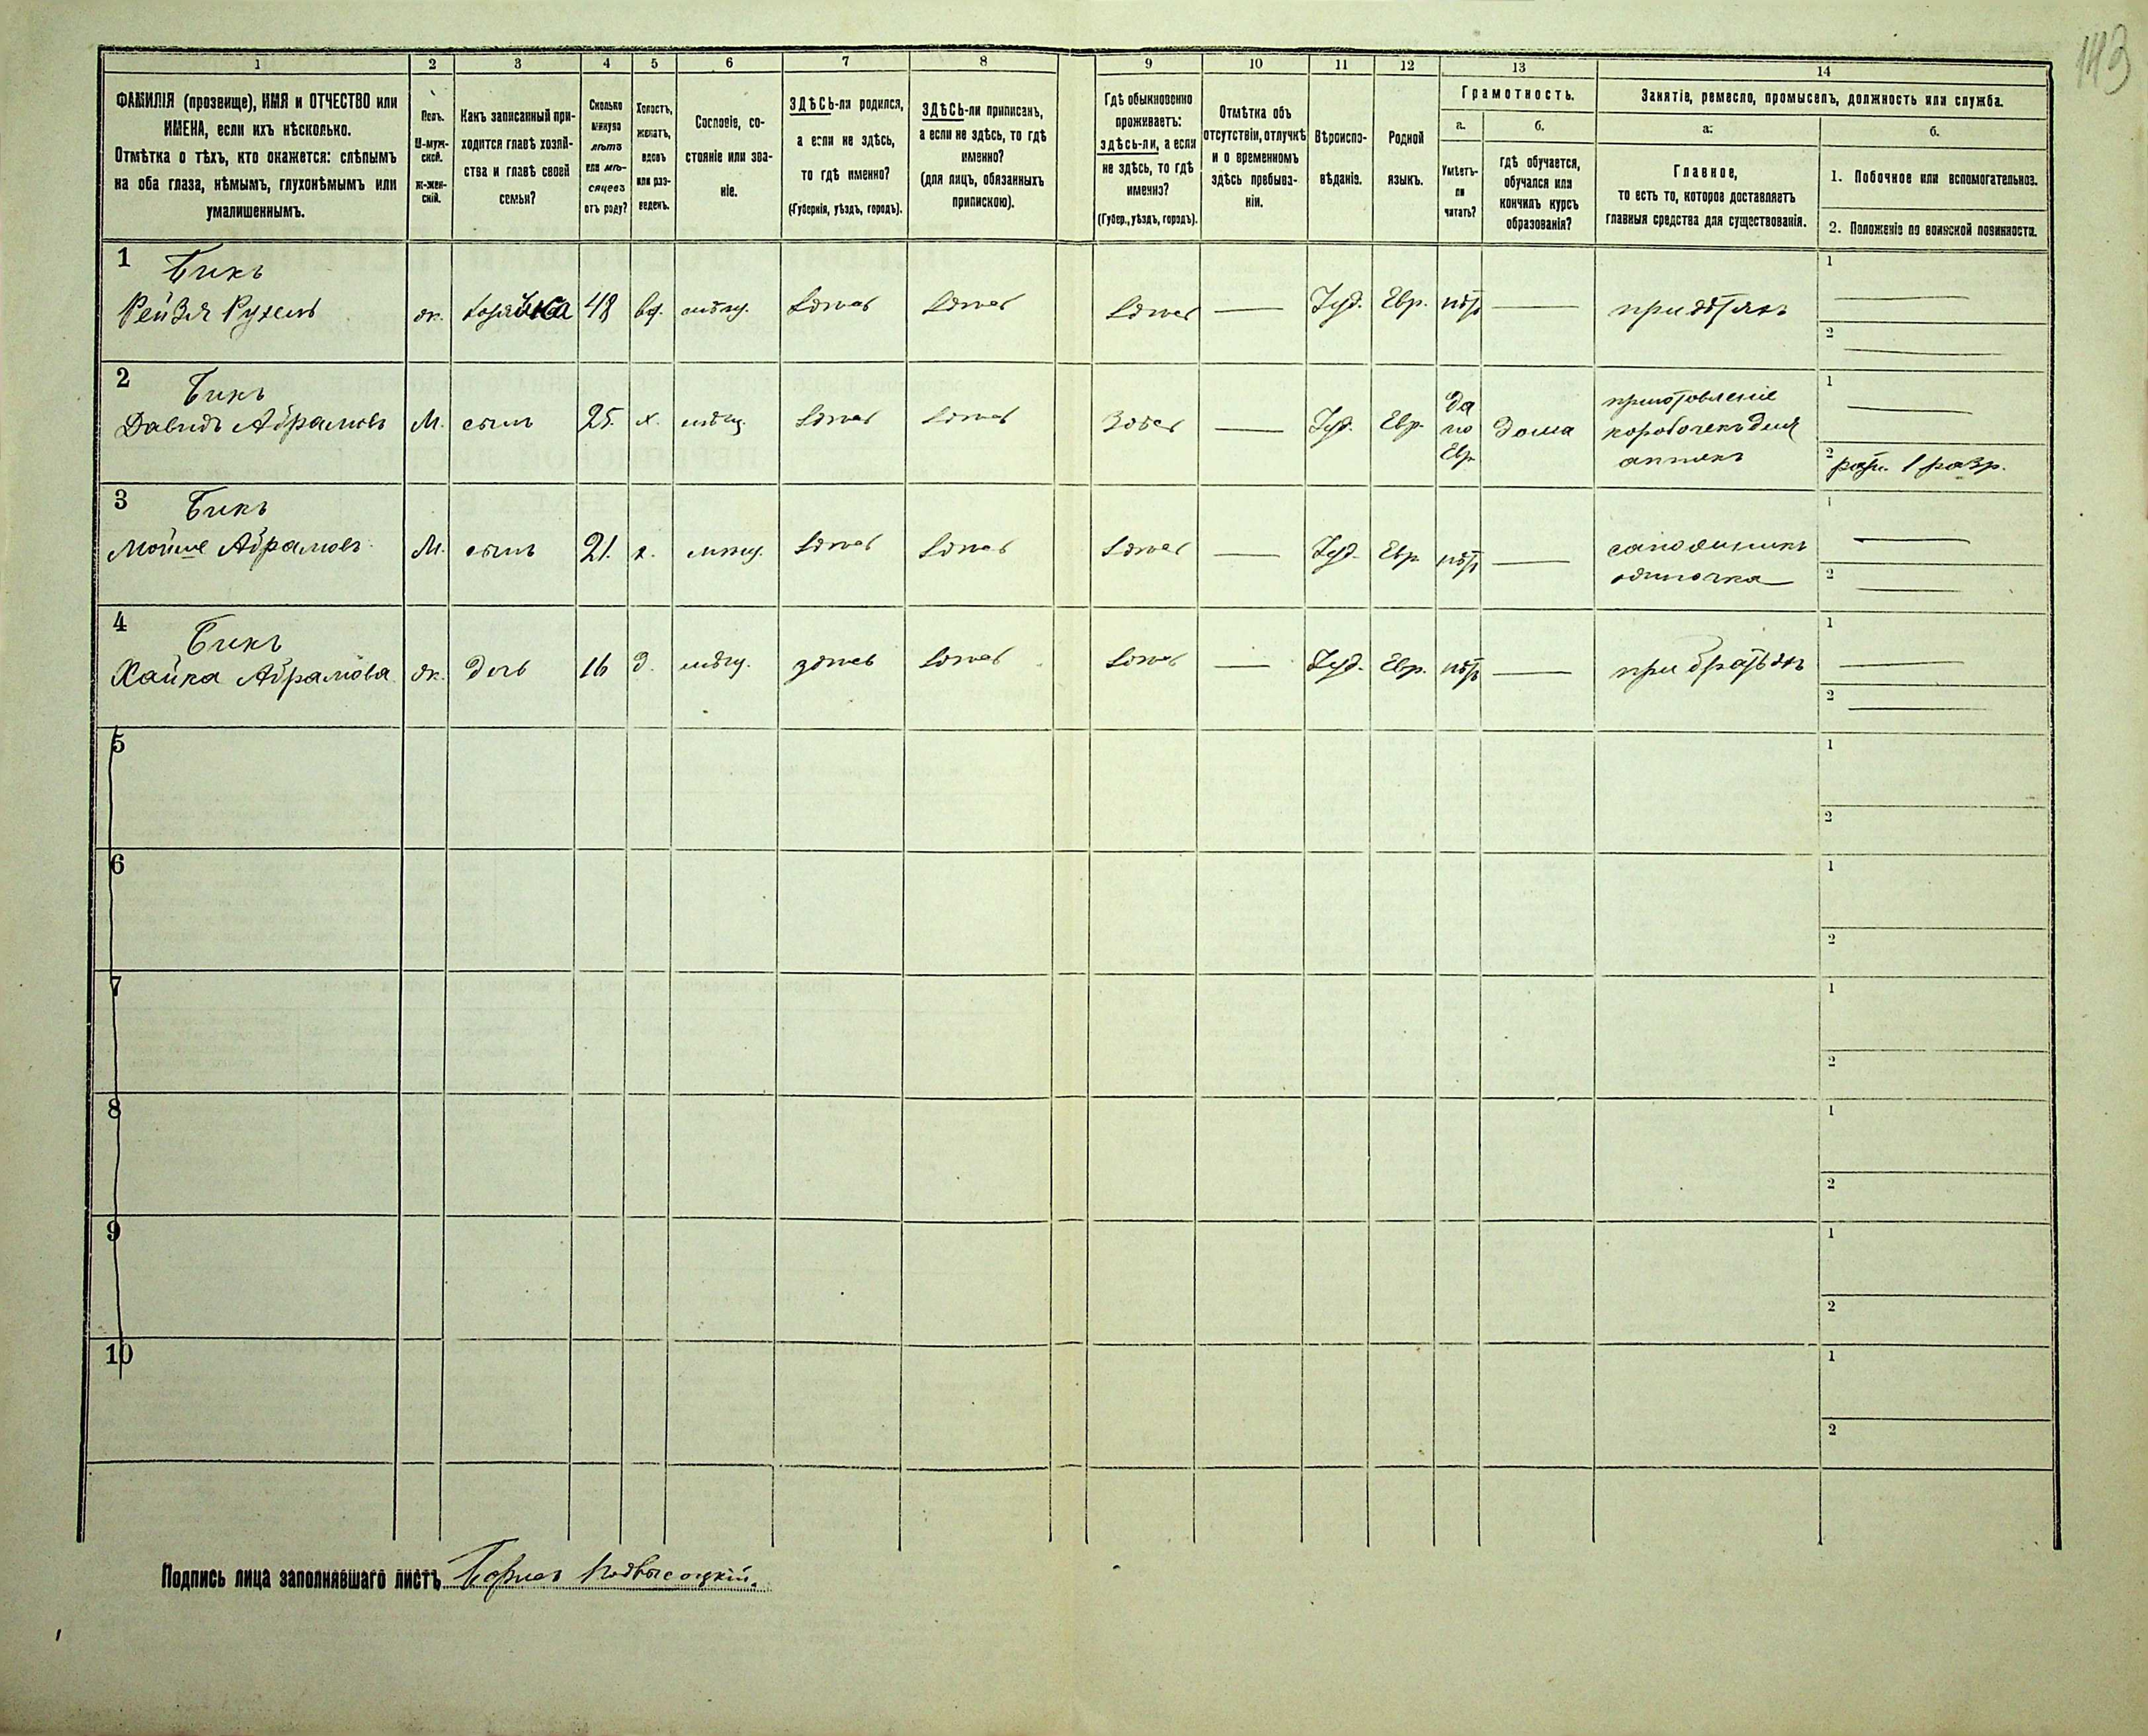 143
1 2 3 4 5 6 7 8 9 10 11 12 13 14
ФАМИЛІЯ (прозвище), ИМЯ и ОТЧЕСТВО или
ИМЕНА, если ихъ нѣсколько.
Отмѣтка о тѣхъ, кто окажется: слѣпымъ
на оба глаза, нѣмымъ, глухонѣмымъ или
умалишеннымъ.
Полъ.
М-муж-
ской.
ж-жен-
скій.
Какъ записанный при-
ходится главѣ хозяй-
ства и главѣ своей
семьи?
Сколько
минуло
лѣтъ
или мѣ-
сяцевъ
отъ роду?
Холостъ,
женатъ,
вдовъ
или раз-
веденъ.
Сословіе, со-
стояніе или зва-
ніе.
ЗДѢСЬ-ли родился,
а если не здѣсь,
то гдѣ именно?
(Губернія, уѣздъ, городъ).
ЗДѢСЬ-ли приписанъ,
а если не здѣсь, то гдѣ
именно?
(для лицъ, обязанныхъ
припискою).
Гдѣ обыкновенно
проживаетъ:
здѣсь-ли, а если
не здѣсь, то гдѣ
именно?
(Губер., уѣздъ, городъ).
Отмѣтка объ
отсутствіи, отлучкѣ
и о временномъ
здѣсь пребыва-
ніи.
Вѣроиспо-
вѣданіе.
Родной
языкъ.
Грамотность.
а.
Умѣетъ-
ли
читать?
б.
гдѣ обучается,
обучался или
кончилъ курсъ
образованія?
Занятіе, ремесло, промыселъ, должность или служба.
а.
Главное,
то есть то, которое доставляетъ
главныя средства для существованія.
б.
1. Побочное или вспомогательное.
2. Положеніе по воинской повинности.
1 Бикъ
Рейзя Рухель ж. хозяйка 48 вд. мѣщ. здѣсь здѣсь здѣсь — Іуд. Евр. нѣтъ — при дѣтяхъ
1 —
2 —
2 Бикъ
Давидъ Абрамовъ М. сынъ 25. х. мѣщ. здѣсь здѣсь здѣсь — Іуд. Евр. да по Евр. дома приготовленіе
коробочекъ для
аптекъ
1 —
2 ратн. 1 разр.
3 Бикъ
Мойше Абрамовъ М. сынъ 21. х. мѣщ. здѣсь здѣсь здѣсь — Іуд. Евр. нѣтъ — сапожникъ
одиночка
1 —
2 —
4 Бикъ
Хайка Абрамова ж. дочь 16 д. мѣщ. здѣсь здѣсь здѣсь — Іуд. Евр. нѣтъ — при братьяхъ
1 —
2 —
5
1
2
6
1
2
7
1
2
8
1
2
9
1
2
10
1
2
Подпись лица заполнявшаго листъ Борисъ Подвысоцкій.